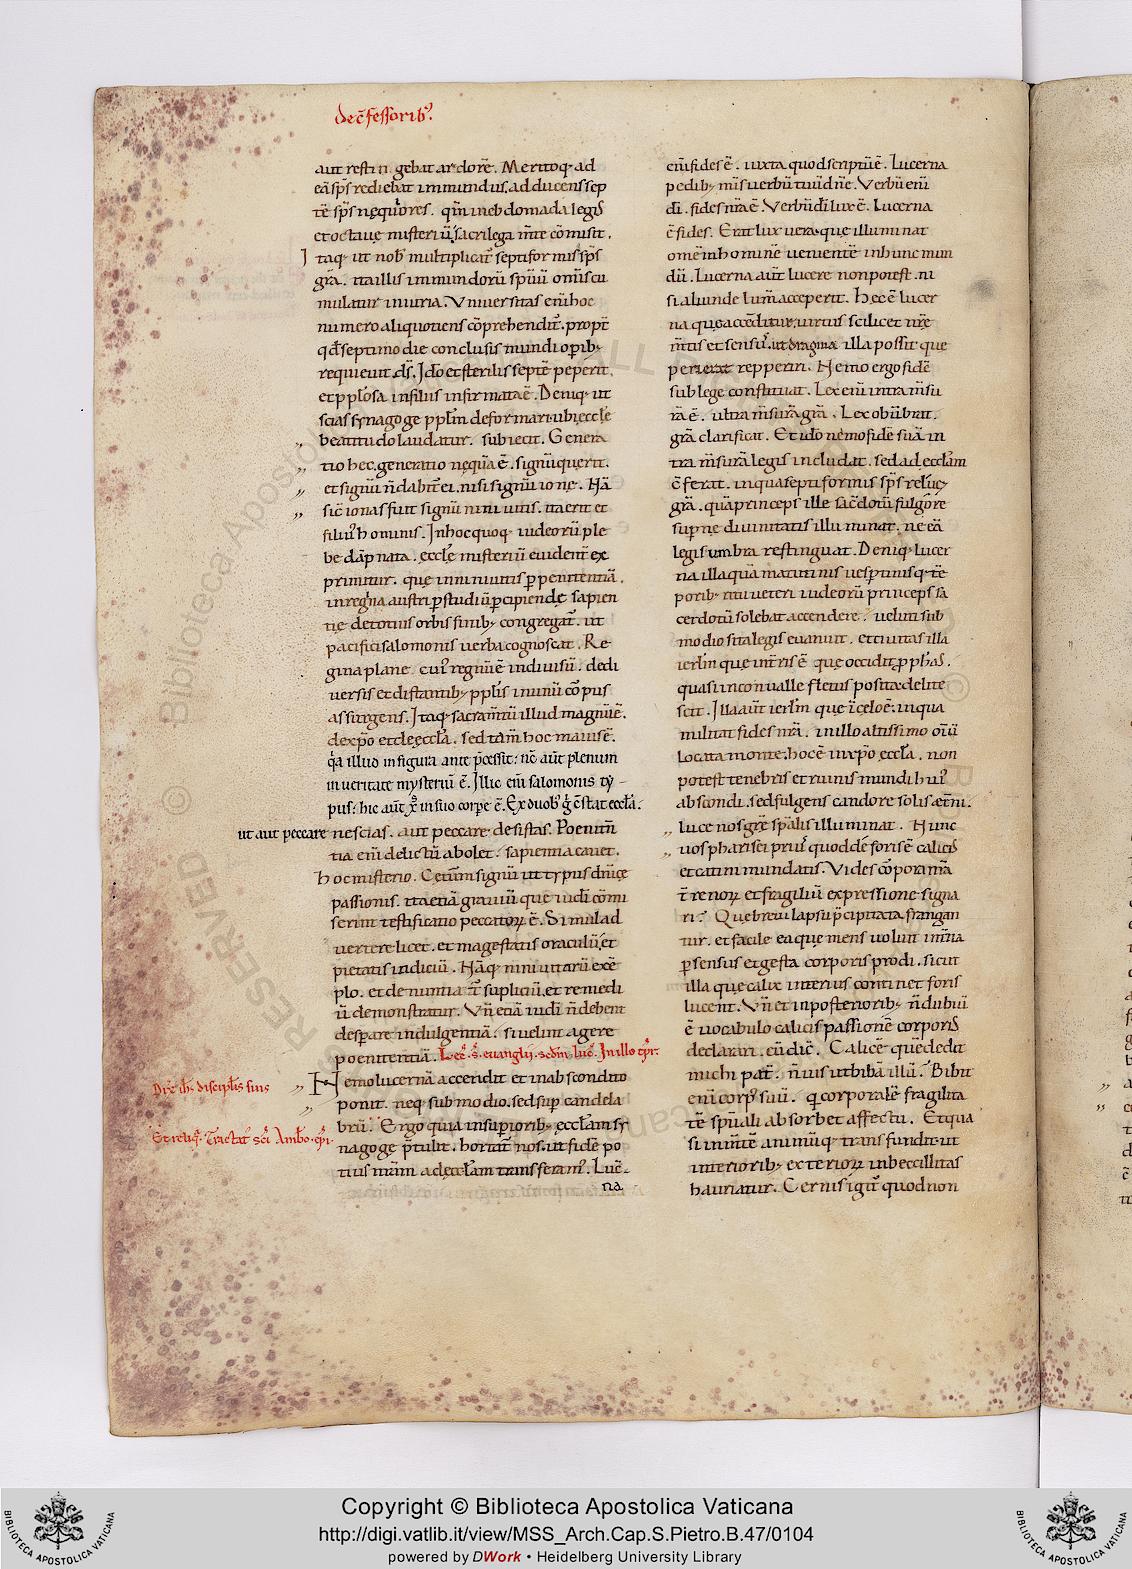 de c̄fessorib᾽.
aut restin gebat ardorē. Meritoq; ad
eā sp̄s rediebat inmundus. adducens sep
tē sp̄s nequiores. qm̄ in ebdomada legis
et octaue misteriū sacrilega m̄te cōmisit.
Itaq; ut nob̄ multiplicat᾽ septiformis sp̄s
gr̄a. ita illis inmundorū sp̄uū om̄is cu
mulatur iniuria. Uniuersitas eni hoc
numero aliquotiens cōprehendit᾽. propt̄
qd̄ septimo die conclusis mundi op̄ib;
requieuit d̄s. Ido et sterilis septē peperit.
et p̄plosa in filiis infirmata ē. Deniq; ut
scias synagoge p̄plm̄ deformari. ubi ęcclę
beatitudo laudatur. subiecit. Genera
tio hec. generatio nequā ē. signū querit.
et signū n̄ dabit̄ ei. nisi signū ionę. Nā
sic̄ ionas fuit signū niniuitis. ita erit et
filius hominis. In hoc quoq; iudeorū ple
be dāpnata. ęcclę misteriū euident̄ ex
primitur. que in niniuitis p̄ penitentiā.
in regina austri p̄ studiū p̄cipiende sapien
tię de totius orbis finib; congregat᾽. ut
pacifici salomonis uerba cognoscat. Re
gina plane cui᾽ regnū ē indiuisū. de di
uersis et distantib; p̄plis in unū cōpus
assurgens. Itaq; sacram̄tū illud magnū ē.
de xp̄o et de ęccla. sed tam̄ hoc maius ē.
q̄a illud in figura ante p̄cessit: nc̄ aūt plenum
in ueritate mysteriū ē. Illic eni salomonis ty
pus: hic aūt xp̄s in suo corpe ē. Ex duob᾽ g̊ c̄stat eccla.
ut aut peccare nescias. aut peccare desistas. Poenitn̄
tia eni delictū abolet. sapientia cauet.
hoc misterio. Ceterum signū ut typus dn̄icę
passionis. ita etiā grauiū que iudi cōmi
serint testificatio peccatorꝝ ē. Simul ad
uertere licet. et magestatis oraculū et
pietatis indiciū. Nāq; niniuitarū exē
plo. et denuntiat᾽ supliciū. et remedi
ū demonstratur. Un̄ etiā iudi n̄ debent
desperare indulgentiā. si uelint agere
poenitentiā. Lec̄. s̄. euanglij. sedm̄ luc̄. In illo t̄pr.
Dix̄ ih̄s discipl̄is suis
Nemo lucernā accendit et in abscondito
ponit. neq; sub modio. sed sup̄ candela
Et reliq̄. Tractat᾽ sc̄i Ambro. ep̄i.
brū. Ergo quia in superiorib; ęccl̄am sy
nagoge p̄tulit. hortat᾽ nos. ut fidē po
tius nr̄am ad ęccl̄am transferam᾽. Lucēr
na
eni fides ē. iuxta quod scriptū ē. Lucerna
pedib; m̄is uerbū tuū dn̄e. Verbū eni
di. fides nr̄a ē. Verbū di lux ē. Lucerna
ē fides. Erat lux uera que illuminat
omē in hominē uenientē in hunc mun
dū. Lucerna aūt lucere non potest. ni
si aliunde lum̄ acceperit. Hec ē lucer
na que accēditur. uirtus scilicet nr̄e
m̄tis et sensus. ut dragma illa possit que
perierat repperiri. Nemo ergo fidē
sub lege constituat. Lex eni intra m̄su
rā ē. ultra m̄surā gr̄a. Lex obūbrat.
gr̄a clarificat. Et ido nemo fidē suā in
tra m̄surā legis includat. sed ad ęccl̄am
c̄ferat. in qua septiformis sp̄s relucet
gr̄a. quā princeps ille sac̄dotū fulgore
sup̄nę diuinitatis illuminat. ne eā
legis umbra restinguat. Deniq; lucer
na illa quā matutinis uesptinisq; tē
porib; ritu ueteri iudeorū princeps sa
cerdotū solebat accendere. uelut sub
modio sita legis euanuit. et ciuitas illa
ierlm̄ que in terris ē. que occidit pphas.
quasi in conualle fletus posita delite
scit. Illa aūt ierlm̄ que in celo ē. in qua
militat fides nr̄a. in illo altissimo oīū
locata monte. hoc ē in xp̄o ęccl̄a. non
potest tenebris et ruinis mundi hui᾽
abscondi. sed fulgens candore solis ęt̄ni.
luce nos gr̄e sp̄alis illuminat. Nunc
uos pharisei prius quod de foris ē calicis
et catini mundatis. Vides corpora nr̄a
t̄renorꝝ et fragiliū expressione signa
ri. Que breui lapsu p̄cipitata frangan
tur. et facile ea que mens uoluit intīna
p̄ sensus et gesta corporis prodi. sicut
illa que calix interius continet foris
lucent. Vn̄ et in posteriorib; n̄ dubiū
ē uocabulo calicis passionē corporis
declarari. cū dic̄. Calicē quē dedit
michi pat̄. n̄ uis ut bibā illū. Bibit
eni corp᾽ suū. qi corporalē fragilita
tē sp̄uali absorbet affectu. et qua
si in m̄tē animūq; transfundit. ut
interiorib; exteriorꝝ inbecillitas
hauriatur. Cernis igit᾽ quod non
Copyright © Biblioteca Apostolica Vaticana
http://digi.vatlib.it/view/MSS_Arch.Cap.S.Pietro.B.47/0104
powered by DWork • Heidelberg University Library